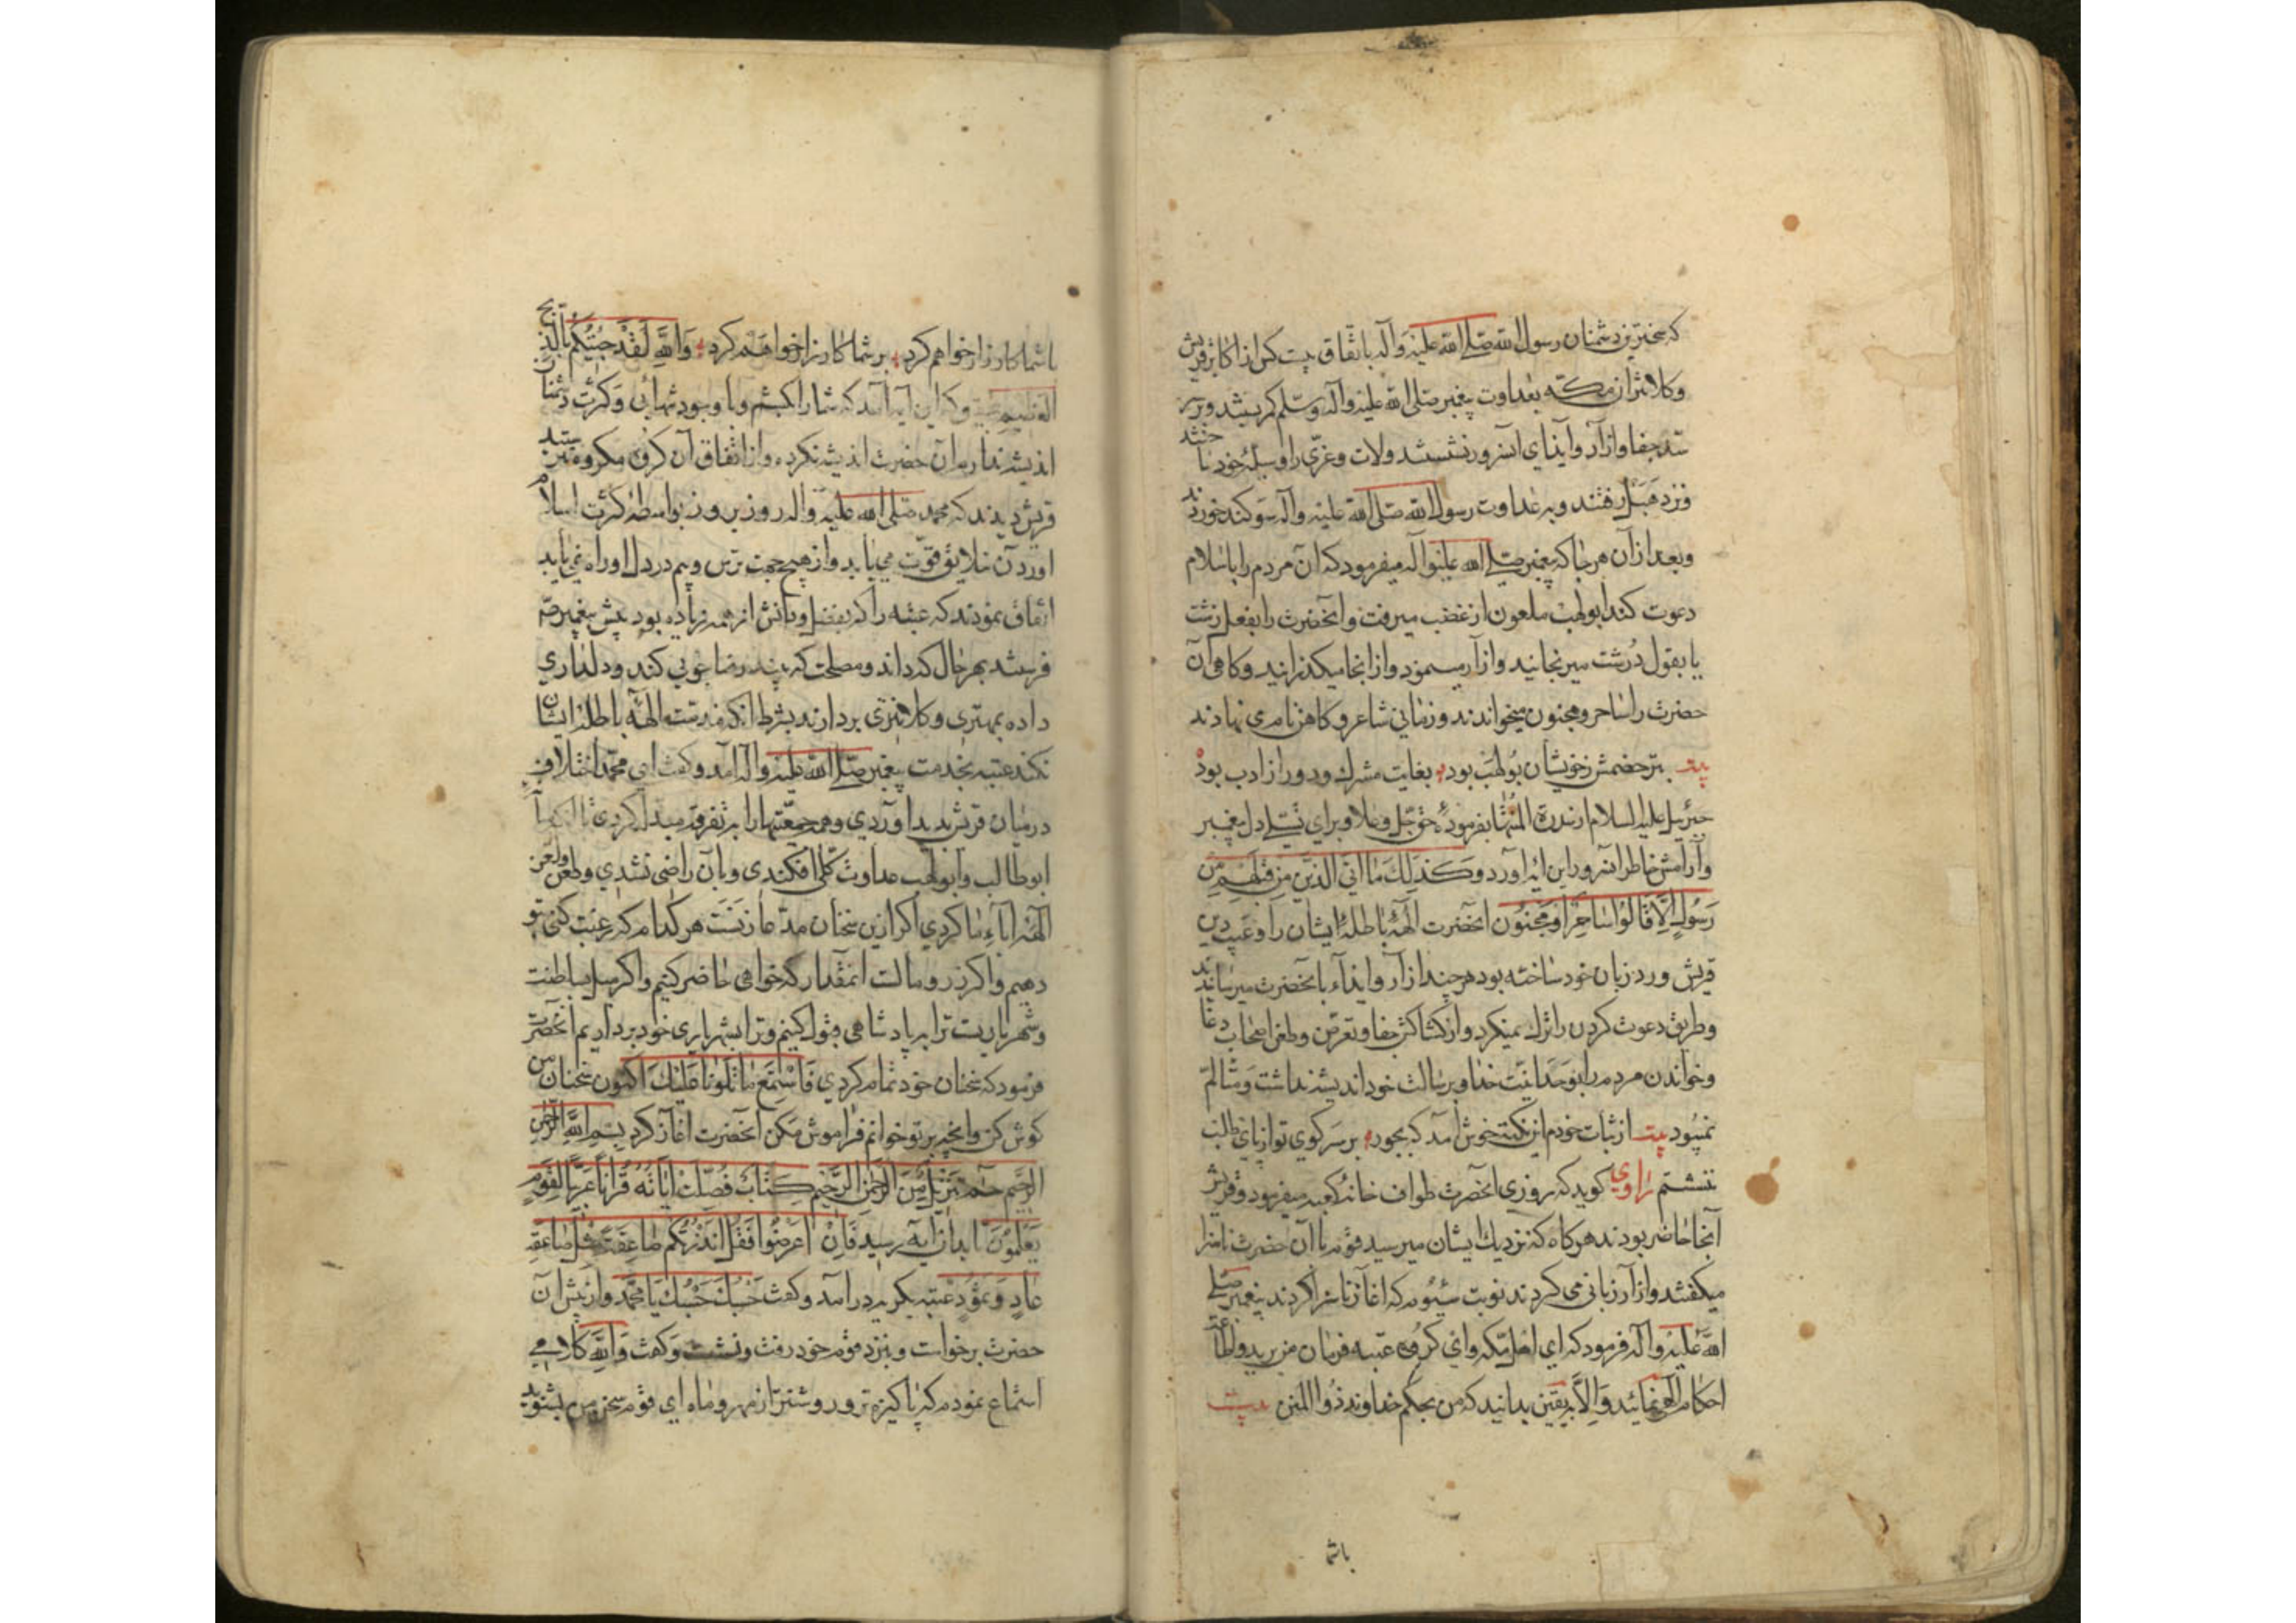 که سخت‌ترین دشمنان رسول الله صلی الله علیه وآله باتفاق بیست کس از اکابر قریش
وکلانتران مکه بعداوت پیغمبر صلی الله علیه وآله وسلم کمر بستند و بر
سد جفا وازار وایذای آنسرور نشستند ولات وعزّی را وسیلهٔ خود ساختند
ونزد هبل رفتند وبه عداوت رسول الله صلی الله علیه وآله سوکند خوردند
وبعد از آن هر جا که پیغمبر صلی الله علیه وآله میفرمود که آن مردم را باسلام
دعوت کند ابولهب ملعون از غضب میرفت وآنحضرت را بفعل زشت
یا بقول درشت میرنجانید وازار مینمود واز انجا میکذرانید وکاهی آن
حضرت را ساحر ومجنون میخواندند وزمانی شاعر وکاهن نام می نهادند
بیت بتر خصمش زخویشان بولهب بود بغایت مشرک ودور از ادب بود
جبرئیل علیه السلام از سدرة المنتها بفرمودهٔ حق جل وعلا وبرای تسلی دل پیغمبر
وآرامش خاطر انسرور این ایه آورد وَكَذَلِكَ مَا اَتَى الَّذِينَ مِن قَبْلِهِم مِّن
رَسُولٍ اِلَّا قَالُوا سَاحِرٌ اَوْ مَجْنُون انحضرت الههٔ باطلهٔ ایشان را وعیب دین
قریش ورد زبان خود ساخته بود هر چند ازار وایذاء بآنحضرت میرساندند
وطریق دعوت کردن را ترک نمیکرد واز کشاکش جفا وتعرض وطعن اصحاب دغا
وخواندن مردم را بوحدانیت خدا وبرسالت خود اندیشه نداشت ومتالم
نمیبود بیت از ثبات خودم این نکته خوش آمد که بجور بر سر کوی تو از پای طلب
ننشستم راوی کوید که روزی انحضرت طواف خانهٔ کعبه میفرمود وقریش
آنجا حاضر بودند هر کاه که نزدیک ایشان میرسید قوم با آن حضرت ناسزا
میکفتند وازار زبانی می کردند نوبت سیوم که اغاز ناسزا کردند پیغمبر صلی
الله علیه وآله فرمود که ای اهل مکه وای کروه عتبه فرمان من برید واطاعت
احکام الهی نمائید وَالّا به یقین بدانید که من بحکم خداوند ذو المنن بیت
باشما
باشما کارزار خواهم کرد بر شما کار زار خواهم کرد وَاللهِ لَقَدْ جِئْتُكُم بِالذَّبْحِ
العظیم وکه این ایه آمد که شما را کشم وبا وجود تنهائی وکثرت دشمنان
اندیشه ندارم آن حضرت اندیشه نکرده واز اتفاق آن کروه مکروه نترسید
قریش دیدند که محمد صلی الله علیه وآله روز بروز بواسطهٔ کثرت اسلام
اوردن خلایق قوت می یابد واز هیچ جهت ترس وبیم در دل او راه نمی یابد
اتفاق نمودند که عتبه را که بفضل ودانش از همه زیاده بود پیش پیغمبر ص
فرستند بهر حال که داند ومصلحت که بیند رضا جوئی کند ودلداری
داده بمهتری وکلانتری بردارند بشرط انکه مذمت الههٔ باطلهٔ ایشان
نکند عتبه بخدمت پیغمبر صلی الله علیه وآله آمد وکفت ای محمد اختلاف
درمیان قریش پدید اوردی وهمه جمعیتها را به تفرقه مبدل کردی تا انکه با
ابوطالب وابولهب عداوت کلی افکندی وبآن راضی نشدی وطعن ولعن
الههٔ اباء ما کردی اکر ازین سخنان مدعا زنست هر کدام که رغبت کنی بتو
دهیم واکر زر ومالست انمقدار که خواهی حاضر کنیم واکر میل سلطنت
وشهریاریست ترا به پادشاهی قبول کنیم وترا بشهریاری خود برداریم انحضرت
فرمود که سخنان خود تمام کردی فَاسْتَمِعْ مَا نَتْلُونا عَلَيْكَ اکنون سخنان من
کوش کن وانچه بر تو خوانم فراموش مکن آنحضرت اغاز کرد بِسْمِ اللهِ الرَّحْمنِ
الرَّحِيمِ حم تَنْزِيلٌ مِنَ الرَّحْمنِ الرَّحِيمِ كِتَابٌ فُصِّلَتْ اَيَاتُهُ قُرْاٰنًا عَرَبِيًّا لِقَوْمٍ
يَعْلَمُونَ تا بدان ایه رسید فَاِنْ اَعْرَضُوا فَقُلْ اَنْذَرْتُكُمْ صَاعِقَةً مِثْلَ صَاعِقَةِ
عَادٍ وَثَمُود عتبه بکریه درآمد وکفت حَسْبُكَ حَسْبُكَ يَا مُحَمَّد واز پیش آن
حضرت برخواست وبنزد قوم خود رفت ونشست وکفت وَاللهِ کلامی
استماع نمودم که پاکیزه تر وروشنتر از مهر وماه ای قوم سخن من بشنوید